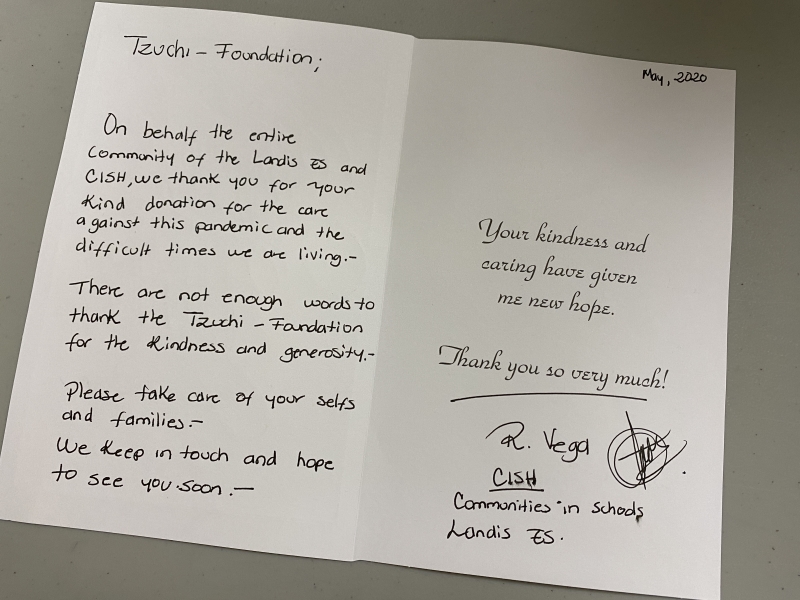 Tzuchi - Foundation;
On behalf the entire
Community of the Landis ES and
CISH, we thank you for your
Kind donation for the care
against this pandemic and the
difficult times we are living.-
There are not enough words to
thank the Tzuchi - Foundation
for the Kindness and generosity.-
Please take care of your selfs
and families.-
We Keep in touch and hope
to see you soon.-
May, 2020
Your kindness and
caring have given
me new hope.
Thank you so very much!
R. Vega
CISH
Communities in schools
Landis ES.